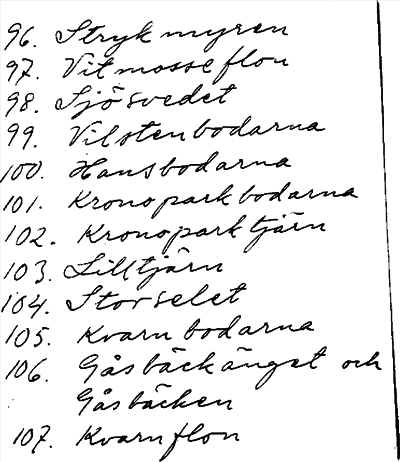 96. Strykmyren
97. Vitmosseflon
98. Sjösvedet
99. Vilstenbodarna
100. Hansbodarna
101. Kronoparkbodarna
102. Kronoparktjärn
103. Lilltjärn
104. Storselet
105. Kvarnbodarna
106. Gåsbäckänget och
Gåsbäcken
107. Kvarnflon